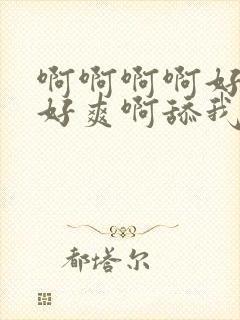 啊啊啊啊好
好爽啊舔我
都塔尔